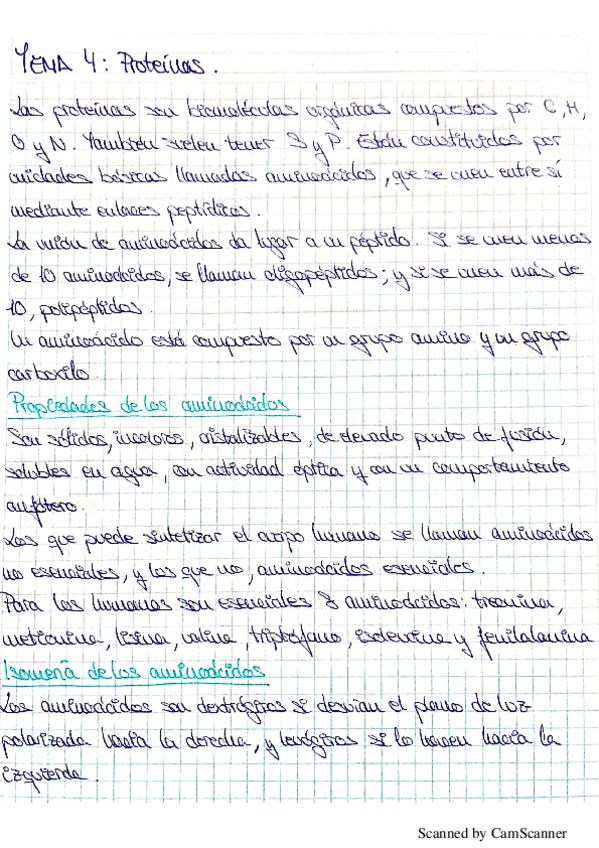 TEMA 4: Proteínas.
Las proteínas son biomoléculas orgánicas compuestas por C, H,
O y N. También suelen tener S y P. Están constituidas por
unidades básicas llamadas aminoácidos, que se unen entre sí
mediante enlaces peptídicos.
La unión de aminoácidos da lugar a un péptido. Si se unen menos
de 10 aminoácidos, se llaman oligopéptidos; y si se unen más de
10, polipéptidos.
Un aminoácido está compuesto por un grupo amino y un grupo
carboxilo.
Propiedades de los aminoácidos
Son sólidos, incoloros, cristalizables, de elevado punto de fusión,
solubles en agua, con actividad óptica y con un comportamiento
anfótero.
Los que puede sintetizar el cuerpo humano se llaman aminoácidos
no esenciales, y los que no, aminoácidos esenciales.
Para los humanos son esenciales 8 aminoácidos: treonina,
metionina, lisina, valina, triptófano, isoleucina y fenilalanina.
Isomería de los aminoácidos
Los aminoácidos son dextrógiros si desvían el plano de luz
polarizada hacia la derecha, y levógiros si lo hacen hacia la
izquierda.
Scanned by CamScanner